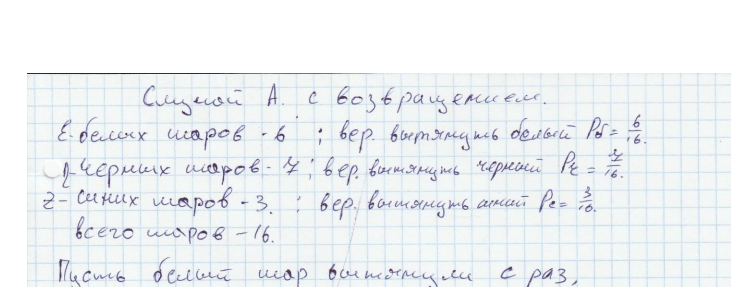 Случай А. с возвращением.
ξ-белых шаров - 6 ; вер. вытянуть белый Pб = 6/16.
η-Черных шаров - 7 ; вер. вытянуть черный Pч = 7/16.
z - Синих шаров - 3. ; вер. вытянуть синий Pс = 3/16.
всего шаров - 16.
Пусть белый шар вытянули с раз,